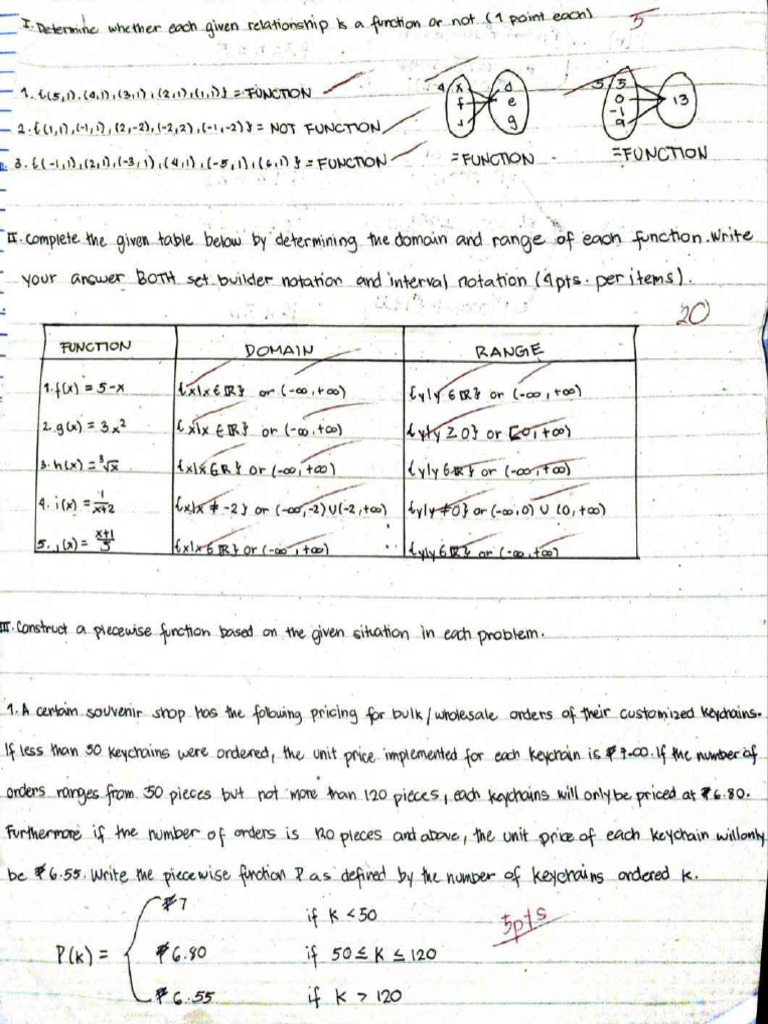 I. Determine whether each given relationship is a function or not (1 point each) 5
1. {(5,1),(4,1),(3,1),(2,1),(1,1)} = FUNCTION
2. {(1,1),(-1,1),(2,-2),(-2,2),(-1,-2)} = NOT FUNCTION
3. {(-1,1),(2,1),(-3,1),(4,1),(-5,1),(6,1)} = FUNCTION
4 x d
f e
g
= FUNCTION
5. 5
0 13
-1
9
= FUNCTION
II. Complete the given table below by determining the domain and range of each function. Write
your answer BOTH set builder notation and interval notation (4pts. per items).
20
FUNCTION DOMAIN RANGE
1. f(x) = 5-x {x|x∈ℝ} or (-∞,+∞) {y|y∈ℝ} or (-∞,+∞)
2. g(x) = 3x² {x|x∈ℝ} or (-∞,+∞) {y|y≥0} or [0,+∞)
3. h(x) = ³√x {x|x∈ℝ} or (-∞,+∞) {y|y∈ℝ} or (-∞,+∞)
4. i(x) = 1/x+2 {x|x≠-2} or (-∞,-2)∪(-2,+∞) {y|y≠0} or (-∞,0) ∪ (0,+∞)
5. j(x) = x+1/5 {x|x∈ℝ} or (-∞,+∞) {y|y∈ℝ} or (-∞,+∞)
III. Construct a piecewise function based on the given situation in each problem.
1. A certain souvenir shop has the following pricing for bulk/wholesale orders of their customized keychains.
If less than 50 keychains were ordered, the unit price implemented for each keychain is ₱7.00. If the number of
orders ranges from 50 pieces but not more than 120 pieces, each keychains will only be priced at ₱6.80.
Furthermore if the number of orders is 120 pieces and above, the unit price of each keychain will only
be ₱6.55. Write the piecewise function P as defined by the number of keychains ordered k.
₱7 if k < 50 5pts
P(k) = ₱6.80 if 50 ≤ k ≤ 120
₱6.55 if k > 120